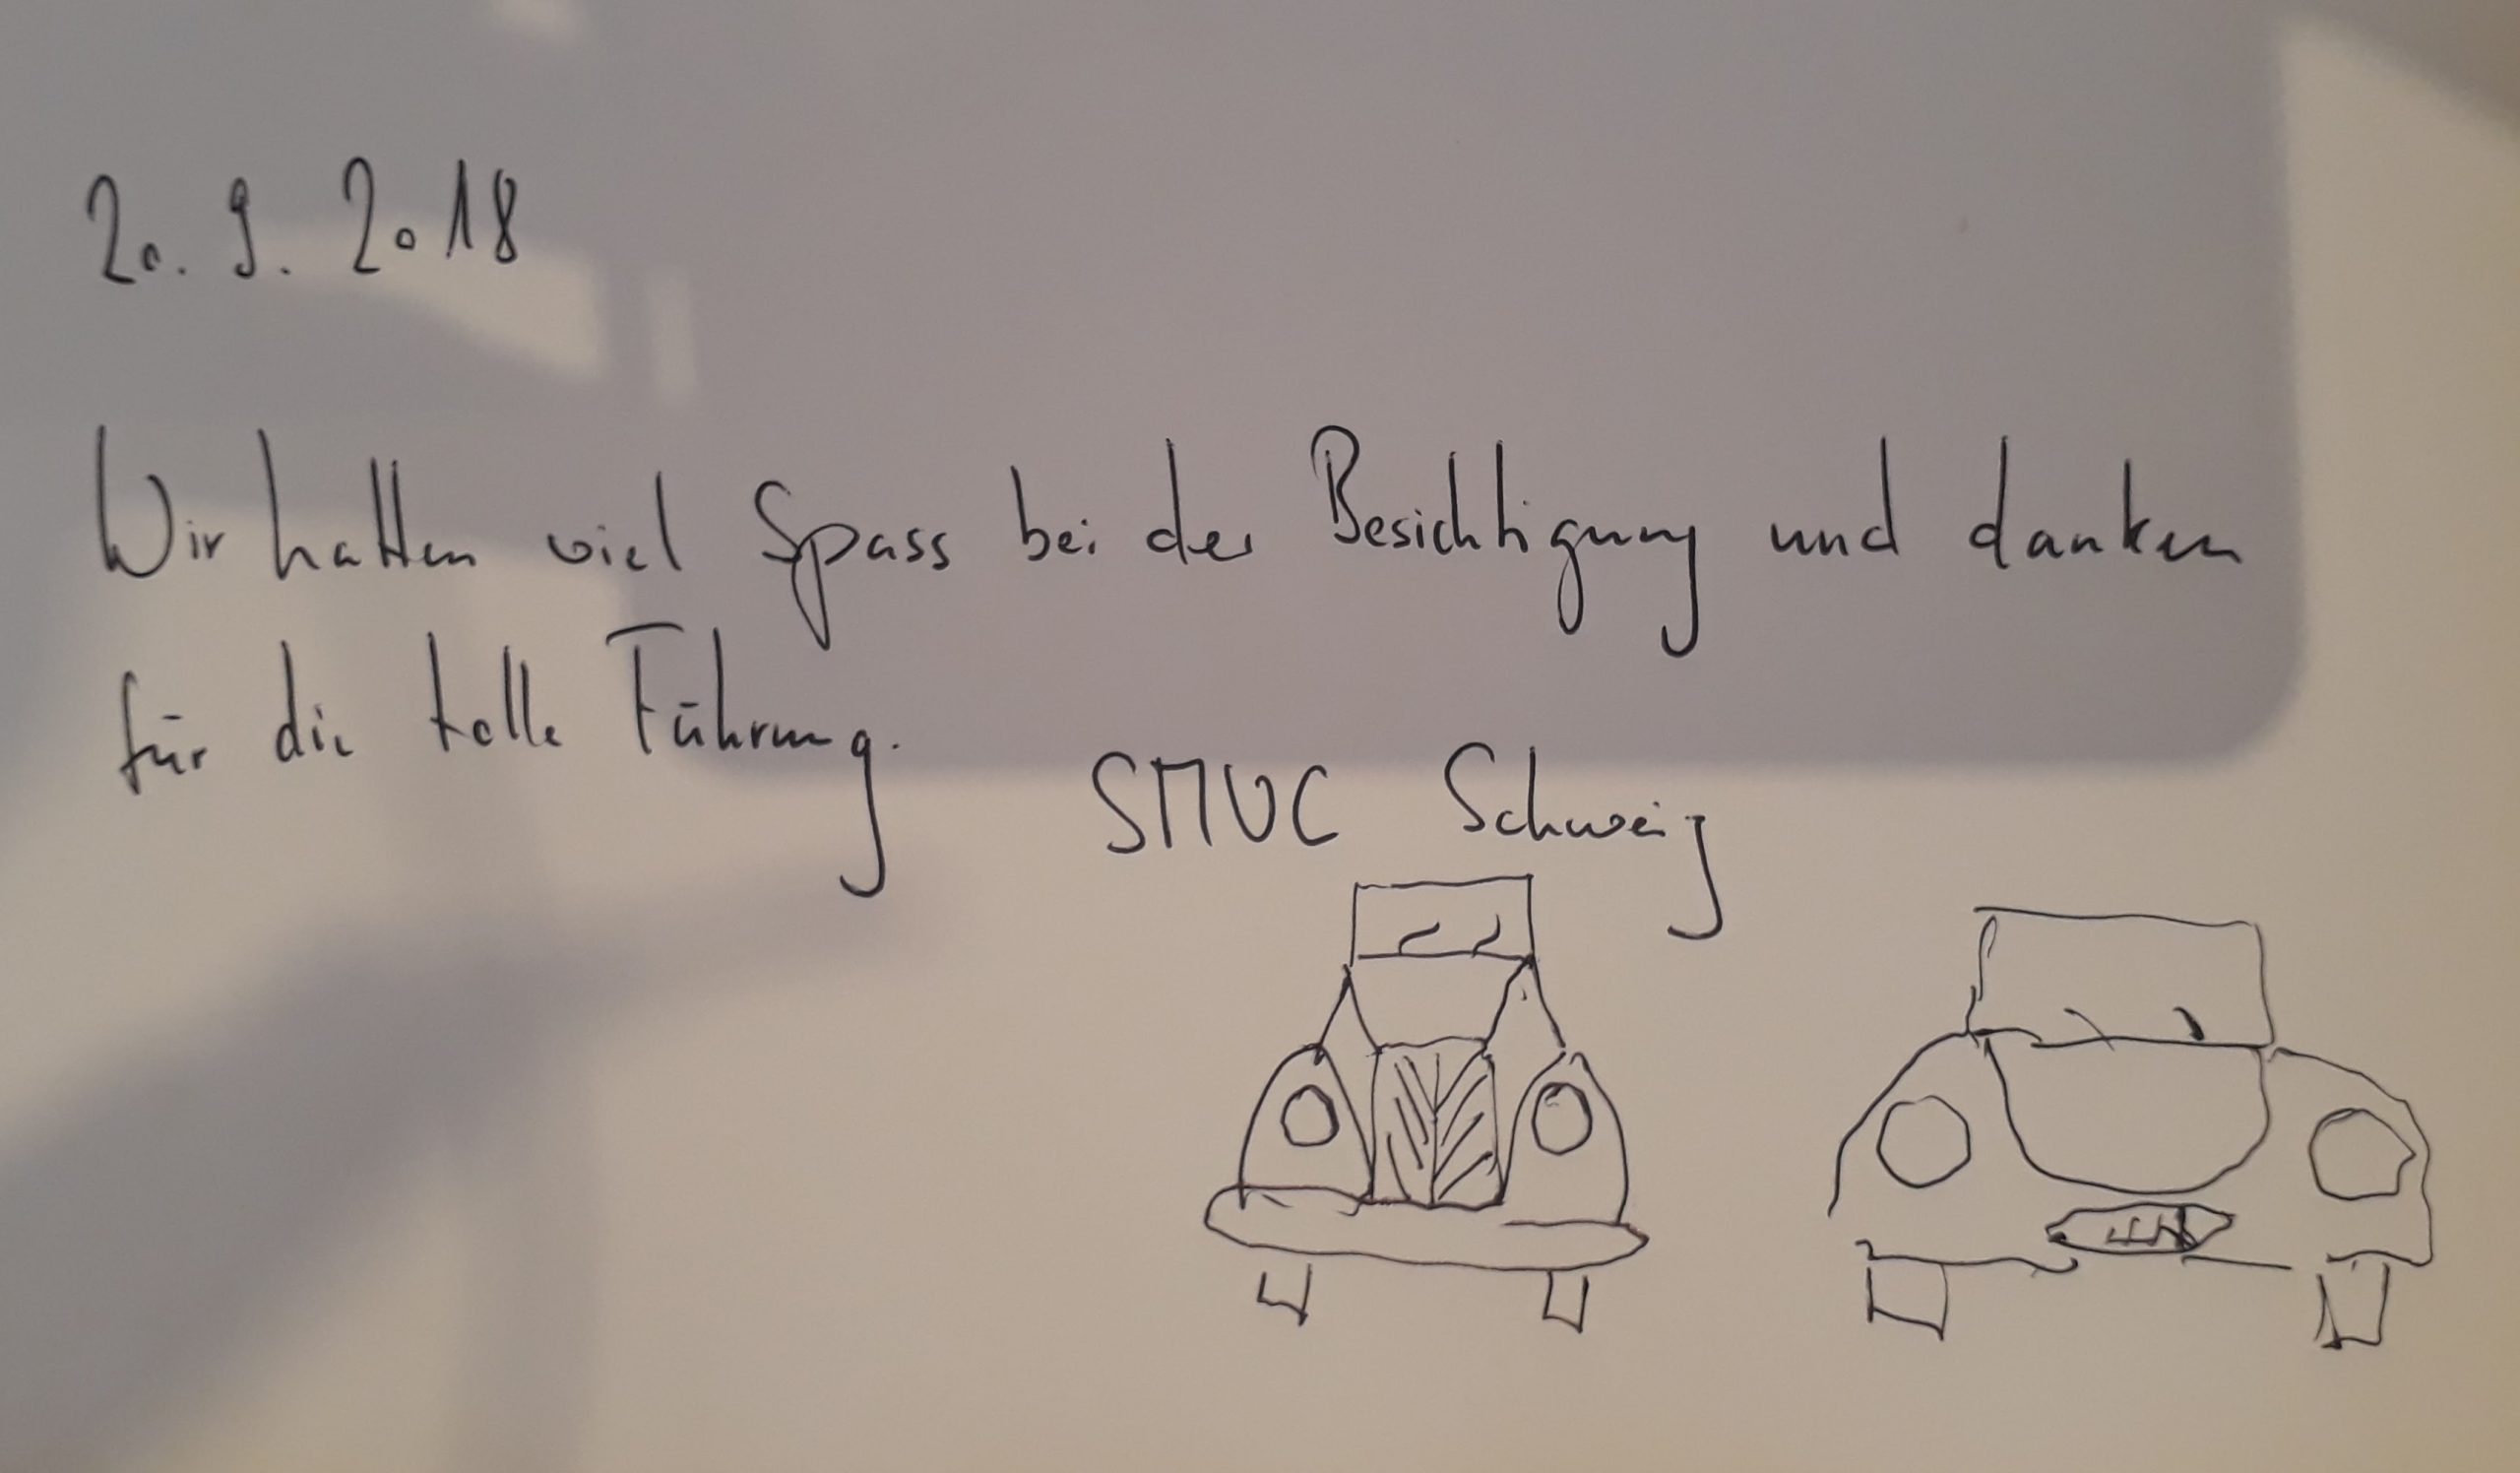 20. 9. 2018
Wir hatten viel Spass bei der Besichtigung und danken
für die tolle Führung.
SMVC Schweiz